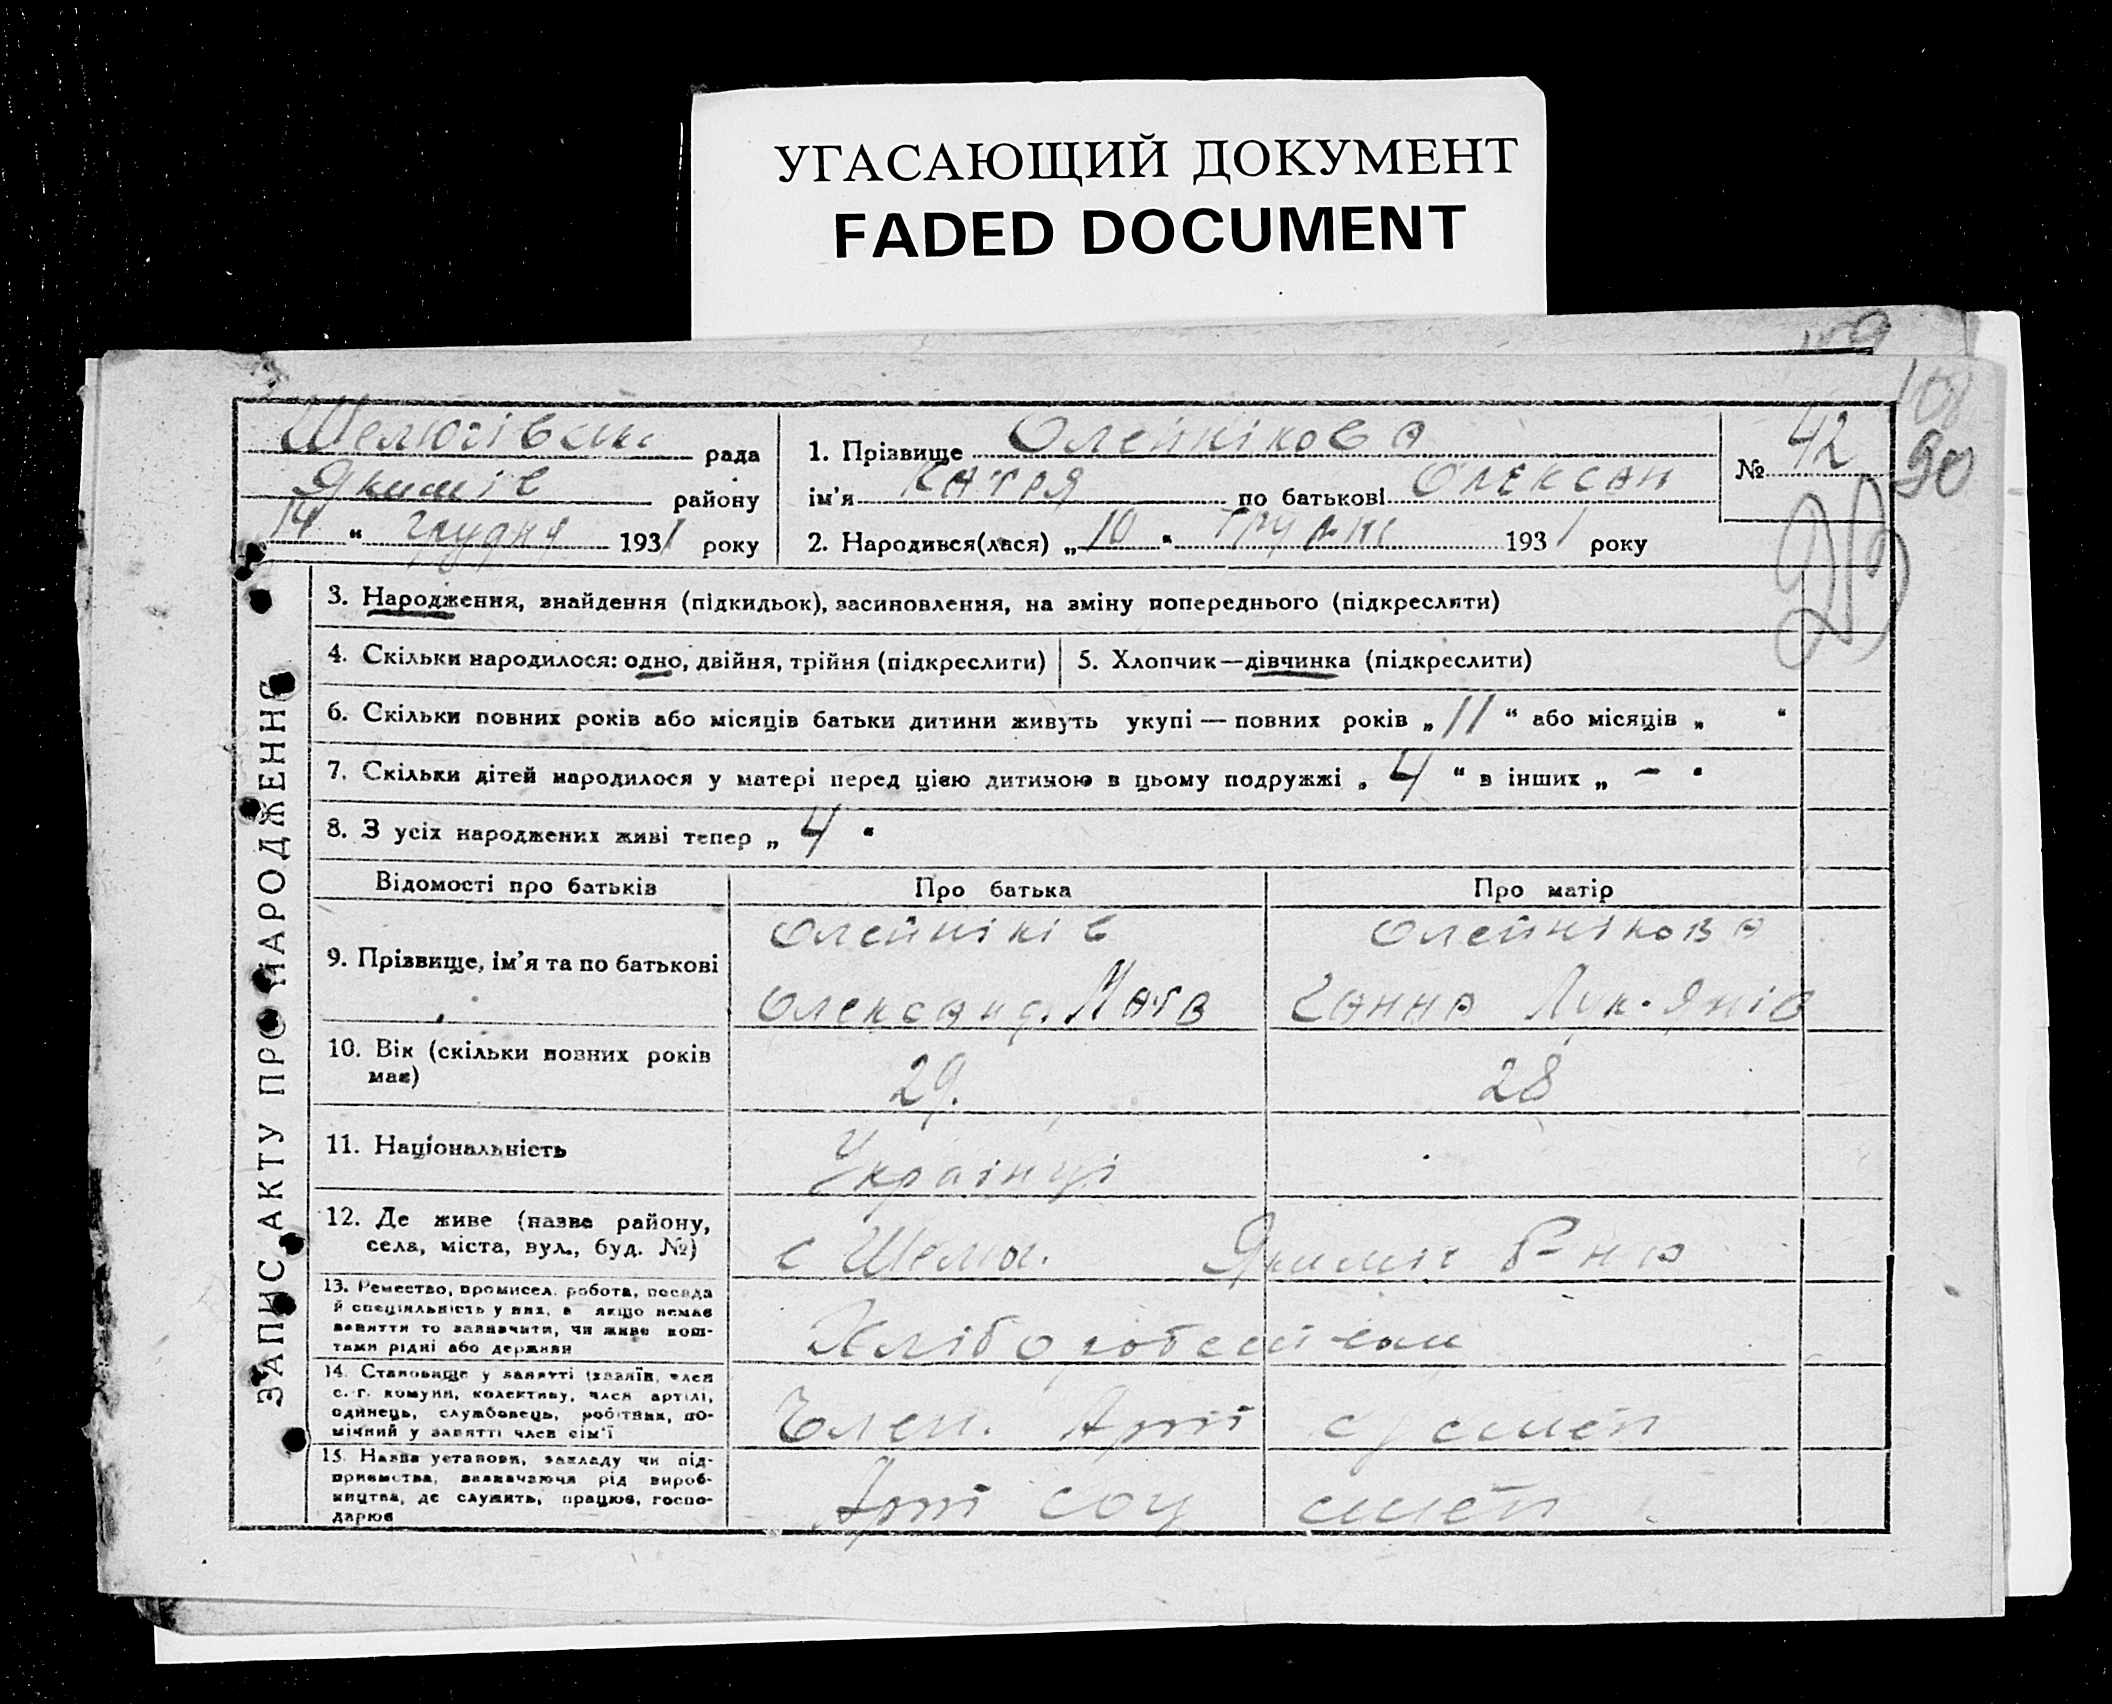 УГАСАЮЩИЙ ДОКУМЕНТ
FADED DOCUMENT
108
Шелюгівск рада
Якимів району
14 " грудня 1931 року
1. Прізвище Олейнікова
ім'я Катря по батькові Олексан
2. Народився(лася) „10" грудня 1931 року
№ 42
90
3. Народження, знайдення (підкидьок), засиновлення, на зміну попереднього (підкреслити)
4. Скільки народилося: одно, двійня, трійня (підкреслити)
5. Хлопчик—дівчинка (підкреслити)
6. Скільки повних років або місяців батьки дитини живуть укупі — повних років „ 11 " або місяців „ "
7. Скільки дітей народилося у матері перед цією дитиною в цьому подружжі „ 4 " в інших „ — "
8. З усіх народжених живі тепер „ 4 "
ЗАПИС АКТУ ПРО НАРОДЖЕННЯ
Відомості про батьків
Про батька
Про матір
9. Прізвище, ім'я та по батькові
Олейніків
Олександ. Матв
Олейнікова
Ганна Лук-янів
10. Вік (скільки повних років має)
29.
28
11. Національність
Українці
12. Де живе (назва району,
села, міста, вул., буд. №)
с Шелюг. Якимів Р-на
13. Ремество, промисел, робота, посада
й спеціяльність у них, а якщо немає
заняття то зазначити, чи живе кош-
тами рідні або держави
Хлібороб
14. Становище у занятті (хазяїн, член
с.-г. комуни, колективу, член артілі,
одинець, службовець, робітник, по-
мічний у занятті член сім'ї
Член. Арт
15. Назва установи, закладу чи під-
приємства, зазначаючи рід вироб-
ництва, де служить, працює, госпо-
дарює
Арт соц